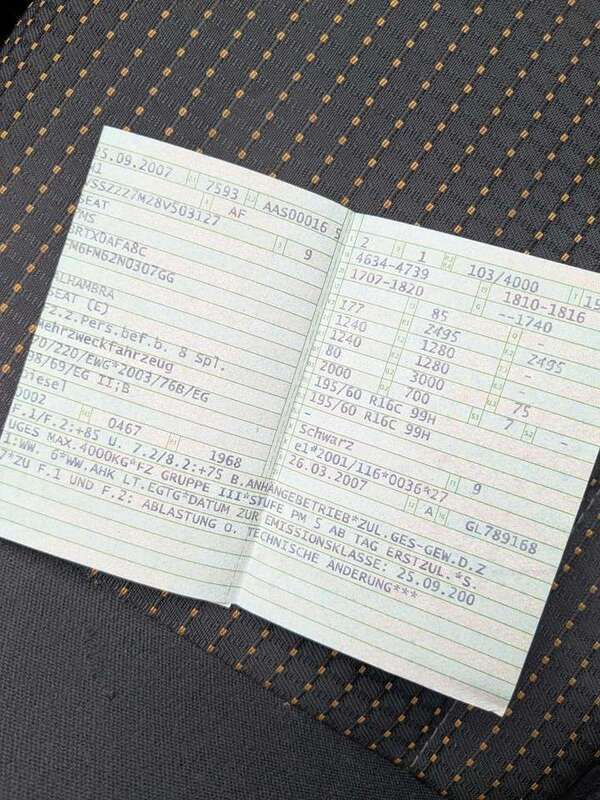 5.09.2007 7593 AAS00016 5
AF
VSSZZZ7MZ8V503127
SEAT 9
7MS
BRTX0AFA8C
FM6FM62N0307GG
ALHAMBRA
SEAT (E)
FZ.z.Pers.bef.b. 8 Spl.
Mehrzweckfahrzeug
70/220/EWG*2003/76B/EG
98/69/EG II;B
Diesel
0002
0467 1968
2 1 103/4000
4634-4739 1810-1816
1707-1820 --1740
177 85 -
1240 2495 2495
1240 1280 -
80 1280 -
2000 3000 75
195/60 R16C 99H 700
195/60 R16C 99H 7 -
-
schwarz
e1*2001/116*0036*27
26.03.2007 9
A GL789168
F.1/F.2:+85 U. 7.2/8.2:+75 B.ANHÄNGEBETRIEB*ZUL.GES-GEW.D.Z
UGES MAX.4000KG*FZ GRUPPE III*STUFE PM 5 AB TAG ERSTZUL.*S.
1:WW. 6*WW.AHK LT.EGTG*DATUM ZUR EMISSIONSKLASSE: 25.09.200
7*ZU F.1 UND F.2: ABLASTUNG O. TECHNISCHE ÄNDERUNG***